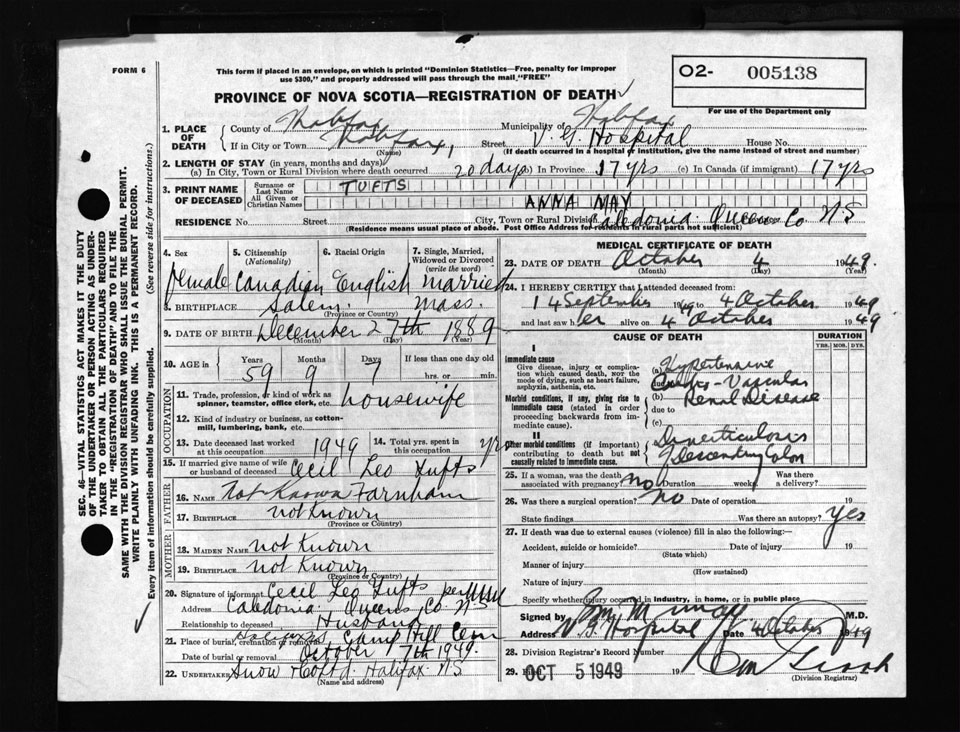 FORM 6
This form if placed in an envelope, on which is printed "Dominion Statistics—Free, penalty for improper use $300," and properly addressed will pass through the mail "FREE"
O2- 005138
For use of the Department only
PROVINCE OF NOVA SCOTIA—REGISTRATION OF DEATH
1. PLACE OF DEATH
County of Halifax Municipality of Halifax
If in City or Town Halifax, Street V. G Hospital House No.
(Name) (If death occurred in a hospital or institution, give the name instead of street and number)
2. LENGTH OF STAY (in years, months and days)
(a) In City, Town or Rural Division where death occurred 20 days In Province 17 yrs (c) In Canada (if immigrant) 17 yrs
3. PRINT NAME OF DECEASED
Surname or Last Name TUFTS
All Given or Christian Names ANNA MAY
RESIDENCE No. Street City, Town or Rural Division Caledonia Queens Co NS
(Residence means usual place of abode. Post Office Address for residents in rural parts not sufficient)
4. Sex female
5. Citizenship (Nationality) Canadian
6. Racial Origin English
7. Single, Married, Widowed or Divorced (write the word) Married
8. BIRTHPLACE Salem Mass.
(Province or Country)
9. DATE OF BIRTH December 27th 1889
(Month) (Day) (Year)
10. AGE in Years 59 Months 9 Days 7 If less than one day old hrs. or min.
OCCUPATION
11. Trade, profession, or kind of work as spinner, teamster, office clerk, etc. housewife
12. Kind of industry or business, as cotton-mill, lumbering, bank, etc.
13. Date deceased last worked at this occupation 1949
14. Total yrs. spent in this occupation yrs
15. If married give name of wife or husband of deceased Cecil Leo Tufts
FATHER
16. Name Not Known Farnham
17. BIRTHPLACE not known
(Province or Country)
MOTHER
18. MAIDEN NAME not known
19. BIRTHPLACE not known
(Province or Country)
20. Signature of informant Cecil Leo Tufts per
Address Caledonia, Queens, Co. N.S
Relationship to deceased Husband
21. Place of burial, cremation or removal Halifax Camp Hill Cem
Date of burial or removal October 7th 1949.
22. UNDERTAKER Snow & Co Ltd. Halifax NS
(Name and address)
MEDICAL CERTIFICATE OF DEATH
23. DATE OF DEATH October 4 1949.
(Month) (Day) (Year)
24. I HEREBY CERTIFY that I attended deceased from:
14 September 1949 to 4 October 1949
and last saw her alive on 4 October 1949
CAUSE OF DEATH
DURATION
YRS. MOS. DYS.
I
Immediate cause
Give disease, injury or complication which caused death, NOT the mode of dying, such as heart failure, asphyxia, asthenia, etc.
(a) Hypertensive
due to Cardio-Vascular
Morbid conditions, if any, giving rise to immediate cause (stated in order proceeding backwards from immediate cause).
(b) Renal Disease
due to
(c)
II
Other morbid conditions (if important) contributing to death but not causally related to immediate cause.
Diverticulosis
Descending Colon
25. If a woman, was the death associated with pregnancy? No Duration weeks. Was there a delivery?
26. Was there a surgical operation? No Date of operation 19
State findings Was there an autopsy? yes
27. If death was due to external causes (violence) fill in also the following:
Accident, suicide or homicide? Date of injury 19
(State which)
Manner of injury
(How sustained)
Nature of injury
Specify whether injury occurred in industry, in home, or in public place
Signed by M.D.
Address V. G. Hospital Date 4 October 1949
28. Division Registrar's Record Number
29. OCT 5 1949 19
(Division Registrar)
SEC. 46—VITAL STATISTICS ACT MAKES IT THE DUTY OF THE UNDERTAKER OR PERSON ACTING AS UNDERTAKER TO OBTAIN ALL THE PARTICULARS REQUIRED IN THE "REGISTRATION OF DEATH" AND TO FILE THE SAME WITH THE DIVISION REGISTRAR WHO SHALL ISSUE THE BURIAL PERMIT.
WRITE PLAINLY WITH UNFADING INK. THIS IS A PERMANENT RECORD.
Every item of information should be carefully supplied. (See reverse side for instructions.)